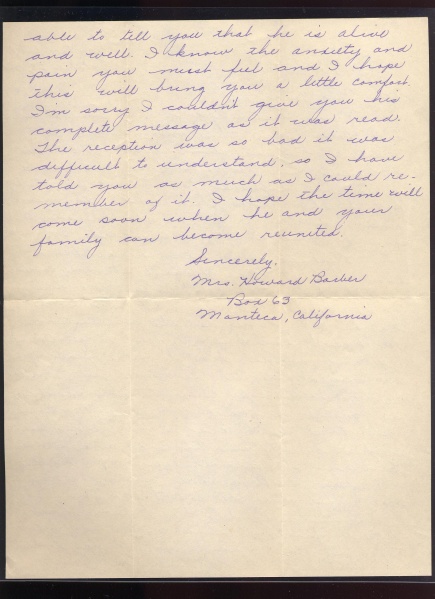 able to tell you that he is alive
and well. I know the anxiety and
pain you must feel and I hope
this will bring you a little comfort.
I'm sorry I couldn't give you his
complete message as it was read.
The reception was so bad it was
difficult to understand, so I have
told you as much as I could re-
member of it. I hope the time will
come soon when he and your
family can become reunited.
Sincerely,
Mrs. Howard Barber
Box 63
Manteca, California